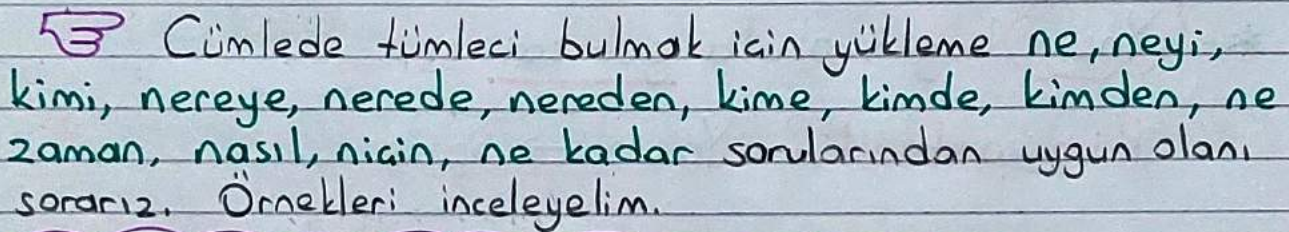 Cümlede tümleci bulmak için yükleme ne, neyi,
kimi, nereye, nerede, nereden, kime, kimde, kimden, ne
zaman, nasıl, niçin, ne kadar sorularından uygun olanı
sorarız. Örnekleri inceleyelim.